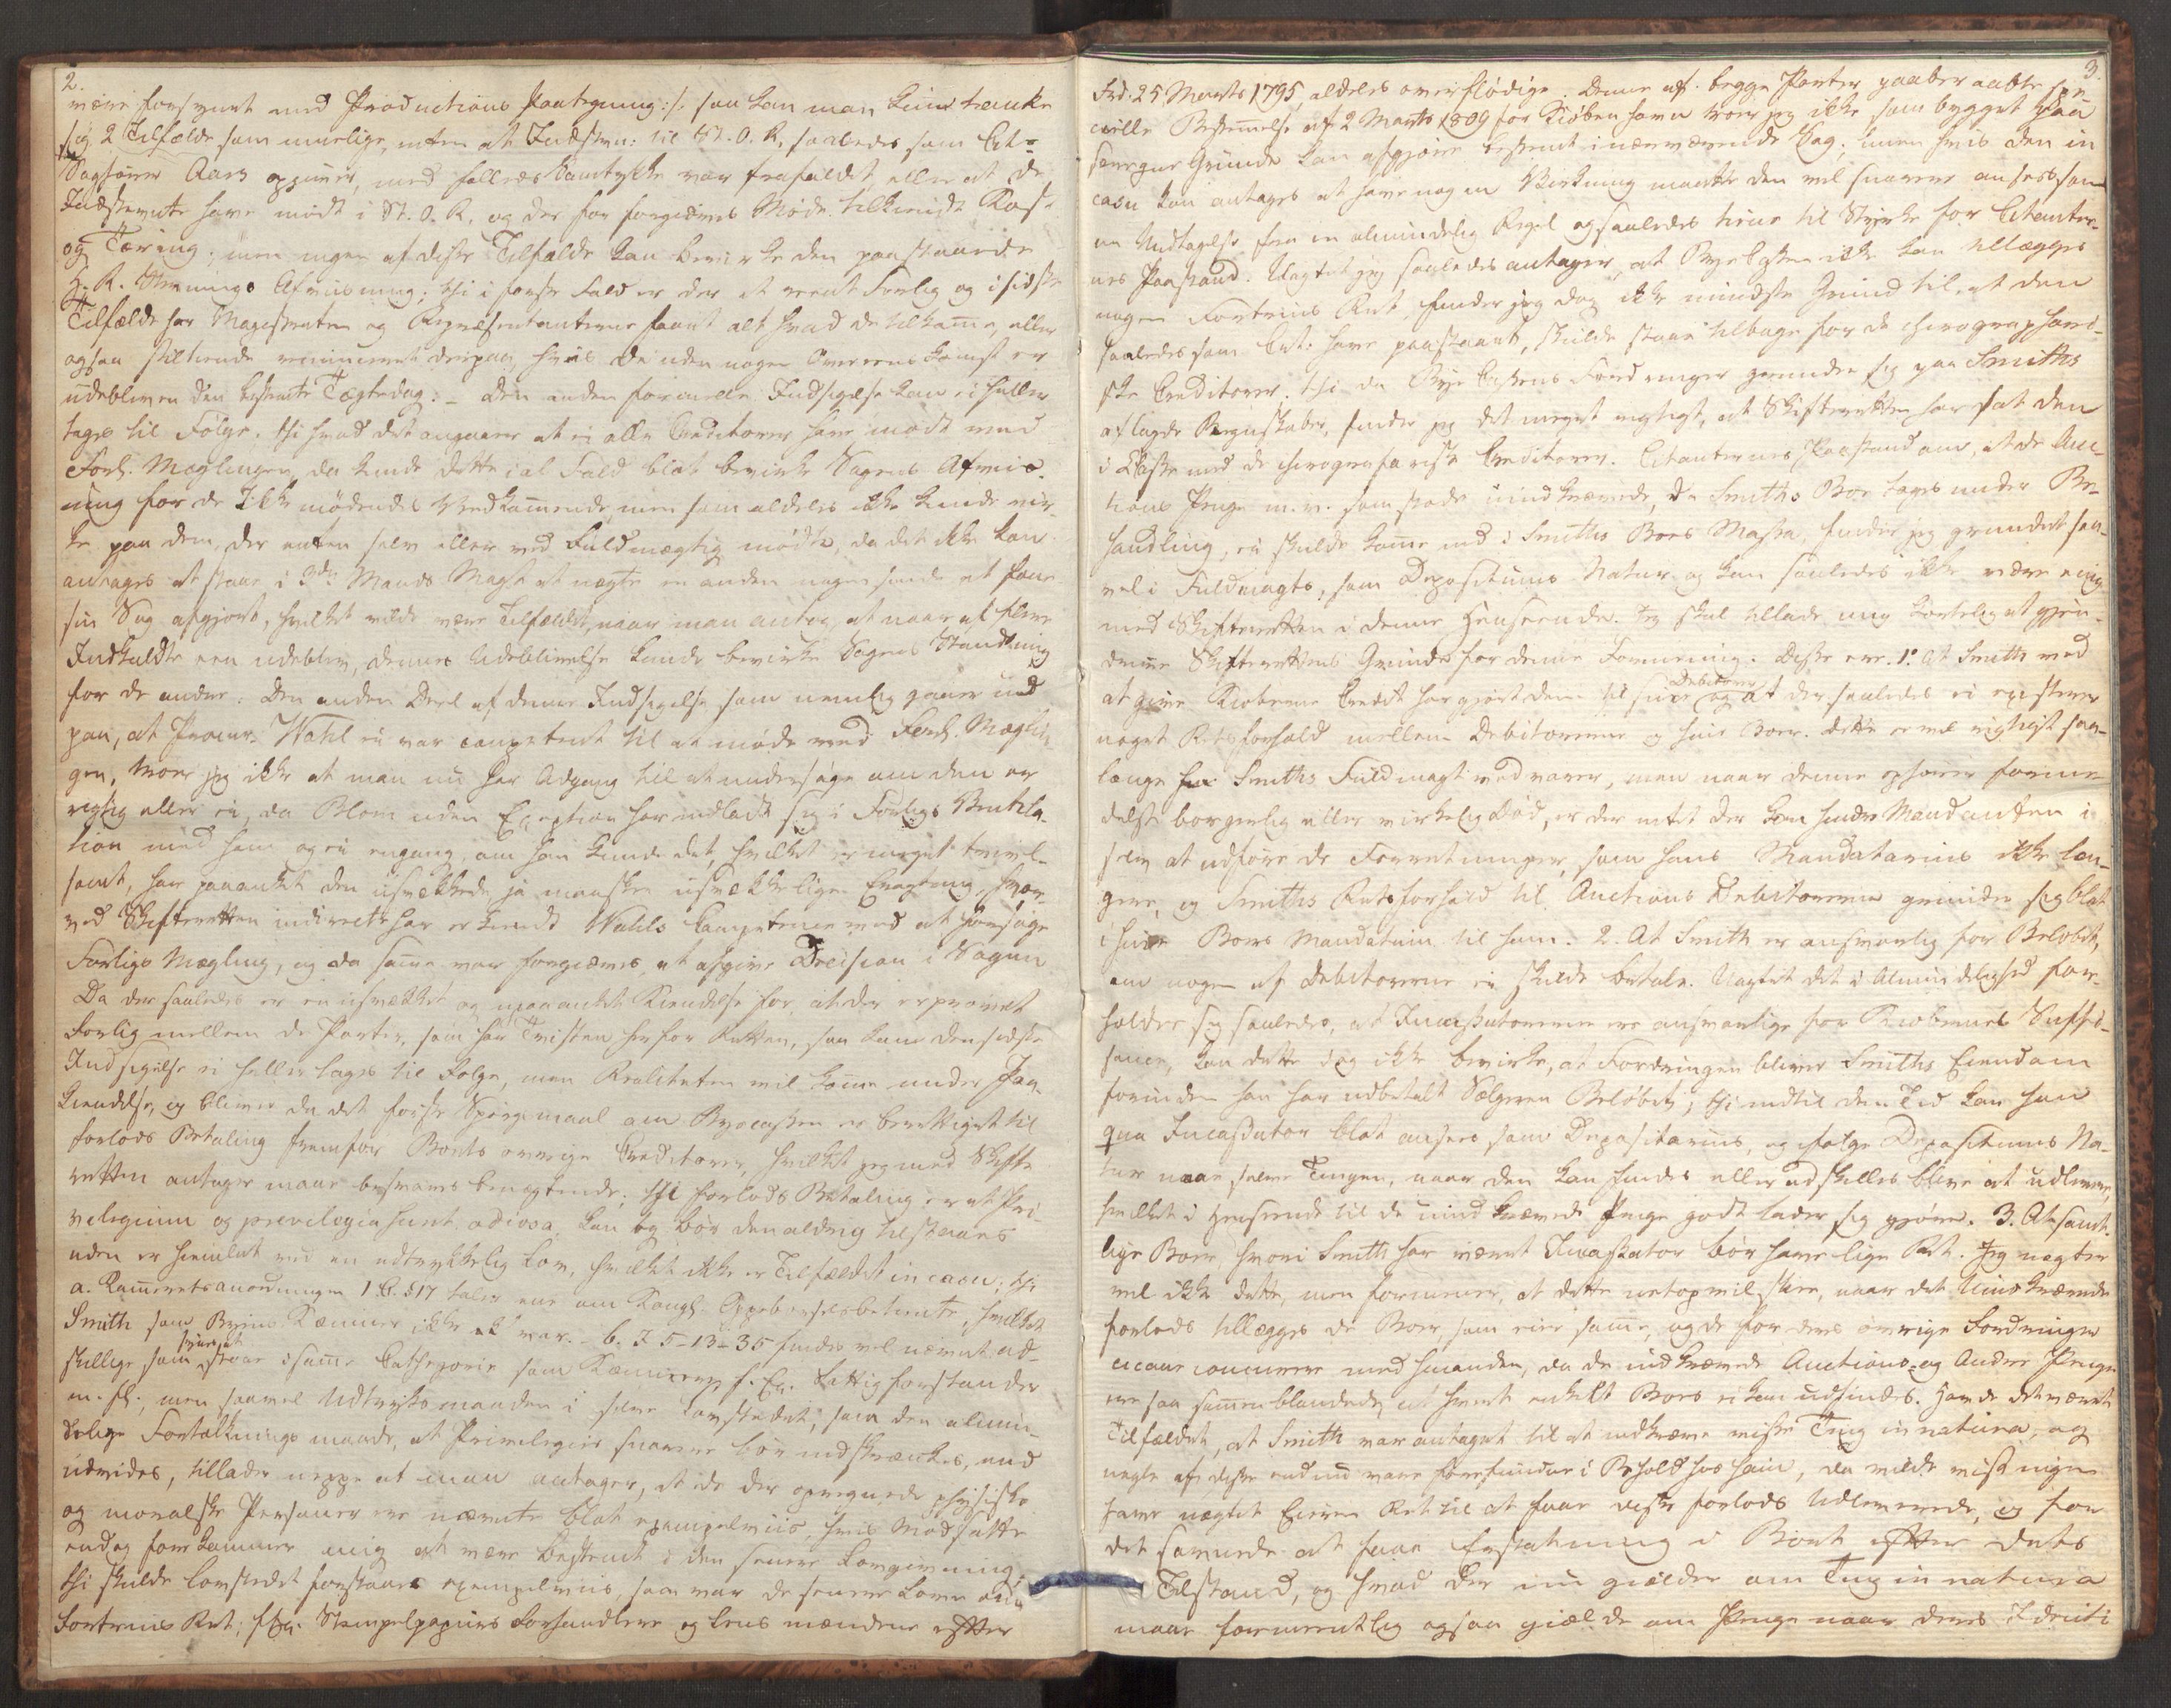 2.
være forsynet med Productions Paategning :/: saa kan man kuns tænke
sig 2 Tilfælde som muelige, enten at Indstævn: til St. O. R. saaledes som Cit:
Sagfører Aars opgiver, med fælleds Samtykke var frafaldet, eller at de
Indstævnte have mødt i St. O. R. og der for forgiæves Møde tilkiendt Kost
og Tæring; men ingen af disse Tilfælde kan bevirke den paastaaede
H. R. Stævnings Afviisning; thi i første Fald er der et reent Forlig og i sidste
Tilfælde har Magistraten og Repræsentanterne faaet alt hvad de tilkomme, eller
ogsaa stiltiende renunceret derpaa, hvis De uden nogen Overeenskomst er
udebleven den bestemte Tægtedag. – Den anden formelle Indsigelse kan ei heller
tages til Følge, thi hvad det angaaer at ei alle Creditorer have mødt ved
Forl. Mæglingen, da kunde dette i al Fald blot bevirke Sagens Afviis-
ning for de ikke mødendes Vedkommende, men som aldeles ikke kunde vir-
ke paa dem, der enten selv eller ved Fuldmægtig mødte, da det ikke kan
antages at staae i 3die Mands Magt at nægte en anden nogensinde at faae
sin Sag afgjort, hvilket vilde være Tilfældet, naar man antog, at naar af flere
Indkaldte een udeblev, dennes Udeblivelse kunde bevirke Sagens Standsning
for de andre. Den anden Deel af denne Indsigelse som nemlig gaaer ud
paa, at Procur. Wahl ei var competent til at møde ved Forl. Mæglin-
gen, troer jeg ikke at man nu har Adgang til at undersøge om den er
rigtig eller ei, da Blom uden Exception har indladt sig i Forligs Ventila-
tion med ham og ei engang, om han kunde det, hvilket er meget tvivl-
somt, har paaanket den usvækkede, ja maaskee usvækkelige Eragtning, hvor-
ved Skifteretten indirecte har erkiendt Wahls Competence ved at forsøge
Forligs Mægling, og da samme var forgiæves, at afgive Decision i Sagen
Da der saaledes er en usvækket og upaaanket Kiendelse for at der er prøvet
Forlig mellem de Parter, som har Tvisten her for Retten, saa kan den sidste
Indsigelse ei heller tages til Følge, men Realiteten vil komme under Paa-
kiendelse, og bliver da det første Spørgsmaal om Byecassen er berettiget til
forlods Betaling fremfor Boets øvrige Creditorer, hvilket jeg med Skifte
retten antager maae besvares benægtende; thi forlods Betaling er et Pri-
vilegium og previlegia sunt odiosa, kan og bør den aldrig tilstaaes
uden er hiemlet ved en udtrykkelig Lov, hvilket ikke er Tilfældet in casu; thi
a. Kammerets anordningen 1 C. § 17 taler ene om Kongl. Oppebørselsbetiente, hvilket
Smith som Byens Kæmner ikke var. – b. I 5-13-35 findes vel nævnt ad-
skillige som synes at staae i samme Cathegorie som Kæmneren f. Ex. Fattigforstander
m. fl., men saavel Udtryksmaaden i selve Lovstedet, som den almin-
delige Fortolknings maade, at Privilegier snarere bør indskrænkes, end
udvides, tillader neppe at man antager, at de der opregnede physiske
og moralske Personer ere nævnte blot exempelviis, hvis Modsatte
endog forekommer mig at være bestemt i den senere Lovgivning;
thi skulde Lovstedet forstaaes exempelviis, saa var de senere Love om
Fortrins Ret, f. Ex. Stempelpapiirs Forhandlere og Lens mændene efter
3.
Frd. 25 Marts 1795, aldeles overflødige. Denne af begge Parter paaberaabte spe
cielle Bestemmelse af 2 Marts 1809 for Kiøbenhavn troer jeg ikke som bygget paa
særegne Grunde kan afgjøre bestemt i nærværende Sag; men hvis den in
casu kan antages at have nogen Virkning maatte den vel snarere ansees som
en Undtagelse fra en almindelig Regel og saaledes tiene til Styrke for Citanter-
nes Paastand. Uagtet jeg saaledes antager, at Byecassen ikke kan tillægges
nogen Fortrins Ret, finder jeg dog ikke mindste Grund til at den
saaledes som Cit: have paastaaet, skulde staae tilbage for de chirographari-
ske Creditorer, thi da Byecassens Fordringer grunder sig paa Smiths
aflagde Regnskaber, finder jeg det meget rigtigt, at Skifteretten har sat den
i Classe med de chirografariske Creditorer. Citanternes Paastand om, at de Auc-
tions Penge m. v. som stode uindkrævede, da Smiths Boe toges under Be-
handling, ei skulde komme ind i Smiths Boes Massa, finder jeg grundet saa-
vel i Fuldmagts, som Depositums Natur og kan saaledes ikke være enig
med Skifteretten i denne Henseende. Jeg skal tillade mig kortelig at gjen-
drive Skifterettens Grunde for denne Formening. Disse ere. 1: At Smith ved
at give Kiøberne Credit har gjort dem til sine Debitorer og at der saaledes ei existerer
noget Retsforhold mellem Debitorerne og hine Boer. Dette er vel rigtigt saa-
længe Smiths Fuldmagt vedvarer, men naar denne ophører forme-
delst borgerlig eller virkelig Død, er der intet der kan hindre Mandanten i
selv at udføre de Forretninger, som hans Mandatarius ikke læn-
gere, og Smiths Retsforhold til Auctions Debitorerne grunder sig blot
i hine Boers Mandatum til ham. 2. At Smith er ansvarlig for Beløbet,
om nogen af Debitorerne ei skulde betale. Uagtet det i Almindelighed for-
holder sig saaledes, at Incassatorerne ere ansvarlige for Kiøbernes Suffi-
sance, kan dette dog ikke bevirke, at Fordringen bliver Smiths Eiendom
forinden han har udbetalt Sælgeren Beløbet; thi indtil den Tid kan han
qua Incassator blot ansees som Depositarius, og ifølge Depositums Na-
tur maae selve Tingen, naar den kan findes eller adskilles blive at udlevere,
hvilket i Henseende til de uindkrævede Penge godt lader sig gjøre. 3. At samt-
lige Boer, hvori Smith har været Incassator bør have lige Ret. Jeg nægter
vel ikke dette, men formener, at dette netop vil skee, naar det Uindkrævede
forlods tillægges de Boer, som eier samme, og de for deres øvrige Fordringer
concurrere med hinanden, da de indkrævede Auctions- og Andre Penge
ere saa sammenblandede, at hvert enkelt Boes ei kan udfindes. Havde det været
Tilfældet, at Smith var antaget til at indkræve visse Ting in natura, og
nogle af disse endnu vare forefundne i Behold hos ham, da vilde vist ingen
have nægtet Eieren Ret til at faae disse forlods udleverede, og for
det savnede at faae Erstatning i Boet efter dets
Tilstand, og hvad der nu gielder om Ting in natura
maae formentlig ogsaa giælde om Penge naar deres Identi